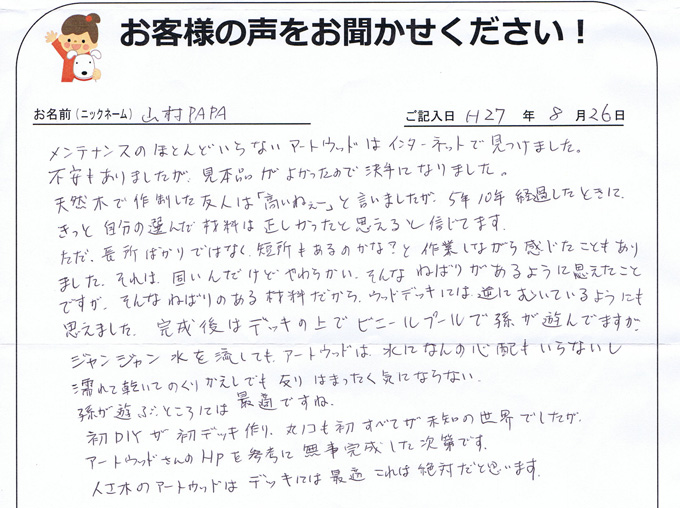 お客様の声をお聞かせください！
お名前（ニックネーム） 山村PAPA ご記入日 H27 年 8 月 26 日
メンテナンスのほとんどいらないアートウッドはインターネットで見つけました。
不安もありましたが、見本品がよかったので決手になりました。
天然木で作制した友人は「高いねぇー」と言いましたが、5年10年経過したときに、
きっと自分の選んだ材料は正しかったと思えると信じてます。
ただ、長所ばかりではなく、短所もあるのかな？と作業しながら感じたこともあり
ました。それは、固いんだけどやわらかい、そんなねばりがあるように思えたこと
ですが、そんなねばりのある材料だから、ウッドデッキには逆にむいているようにも
思えました。完成後はデッキの上でビニールプールで孫が遊んでますが、
ジャンジャン水を流しても、アートウッドは、水になんの心配もいらないし
濡れて乾いてのくりかえしでも反りはまったく気にならない。
孫が遊ぶところには最適ですね。
初DIYが初デッキ作り、丸ノコも初すべてが未知の世界でしたが、
アートウッドさんのHPを参考に無事完成した次第です。
人工木のアートウッドはデッキには最適 これは絶対だと思います。